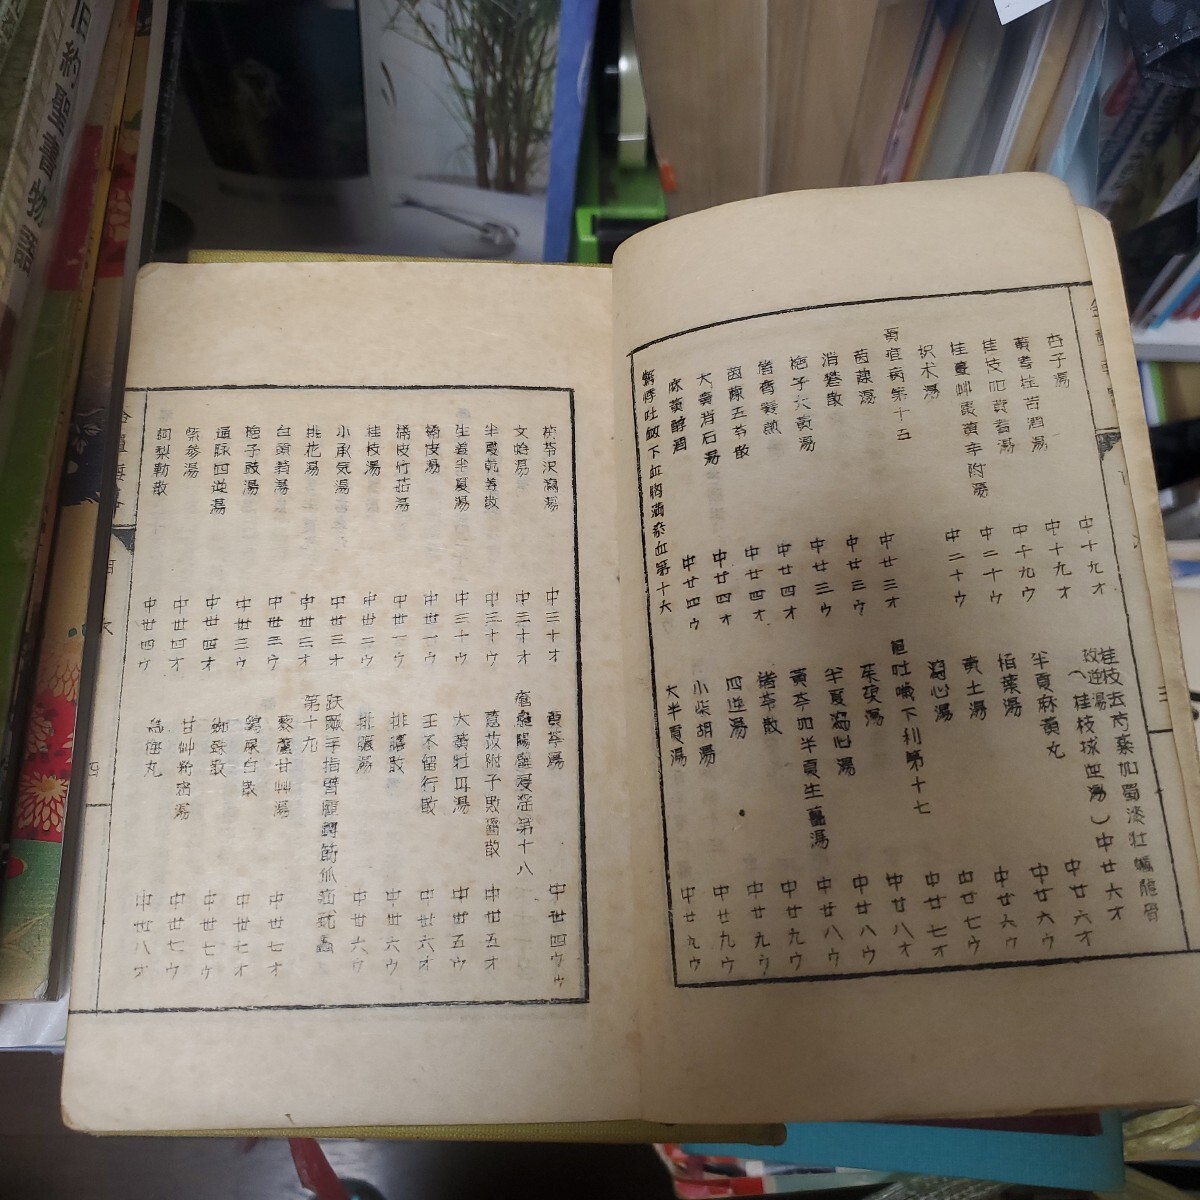 杏子湯 中十九オ
黄耆桂苦酒湯 中十九オ
桂枝加黄耆湯 中十九ウ
桂薑艸棗黄辛附湯 中二十ウ
枳朮湯 中二十ウ
黄疸病第十五
茵蔯湯 中廿三オ
消礬散 中廿三ウ
梔子大黄湯 中廿三ウ
猪膏髪煎 中廿四オ
茵蔯五苓散 中廿四オ
大黄消石湯 中廿四オ
麻黄醇酒 中廿四ウ
驚悸吐衂下血胸満瘀血第十六
桂枝去芍薬加蜀漆牡蠣龍骨
救逆湯(桂枝救逆湯)中廿六オ
半夏麻黄丸 中廿六オ
栢葉湯 中廿六ウ
黄土湯 中廿六ウ
瀉心湯 中廿七ウ
嘔吐噦下利第十七 中廿七オ
茱萸湯 中廿八オ
半夏瀉心湯 中廿八ウ
黄芩加半夏生薑湯 中廿八ウ
猪苓散 中廿九ウ
四逆湯 中廿九ウ
小柴胡湯 中廿九ウ
大半夏湯 中廿九ウ
茯苓沢瀉湯 中三十オ
文蛤湯 中三十オ
半夏乾薑散 中三十ウ
生薑半夏湯 中三十ウ
橘皮湯 中丗一ウ
橘皮竹茹湯 中丗一ウ
桂枝湯 中丗二ウ
小承気湯 中丗三オ
桃花湯 中丗三オ
白頭翁湯 中丗三ウ
梔子豉湯 中丗三ウ
通脉四逆湯 中丗四オ
紫参湯 中丗四オ
訶梨勒散 中丗四ウ
黄芩湯 中丗四ウ
瘡癰腸癰浸淫第十八
薏苡附子敗醤散 中丗五オ
大黄牡丹湯 中丗五ウ
王不留行散 中丗六オ
排膿散 中丗六ウ
排膿湯 中丗六ウ
趺蹶手指臂腫轉筋狐疝蚘蟲
第十九
藜蘆甘艸湯 中丗七オ
雞屎白散 中丗七オ
蜘蛛散 中丗七ウ
甘艸粉蜜湯 中丗七ウ
烏梅丸 中丗八オ
四
旧約聖書物語